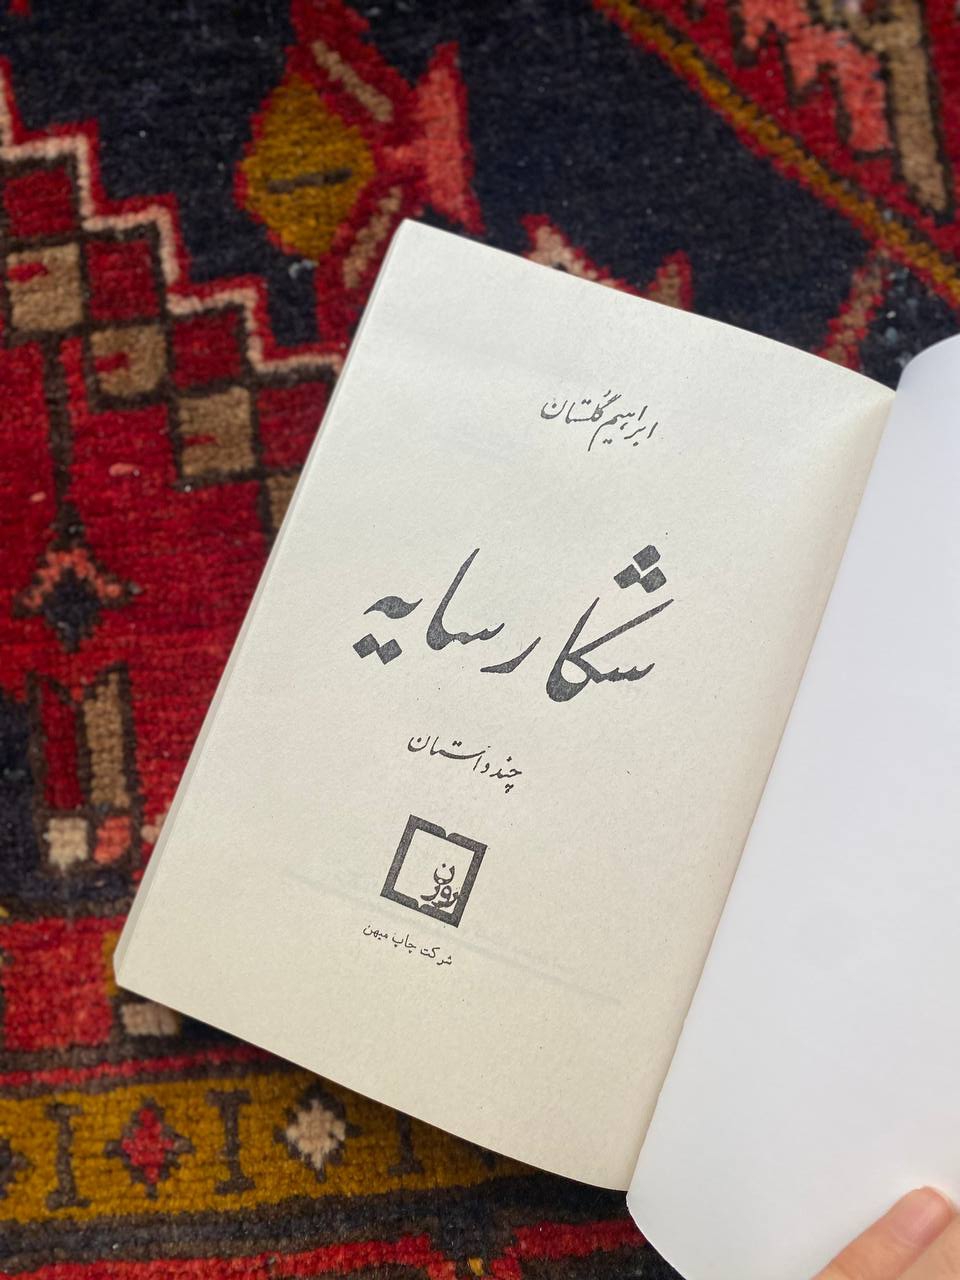 ابراهیم گُلستان
شکار سایه
چند داستان
روزن
شرکت چاپ میهن